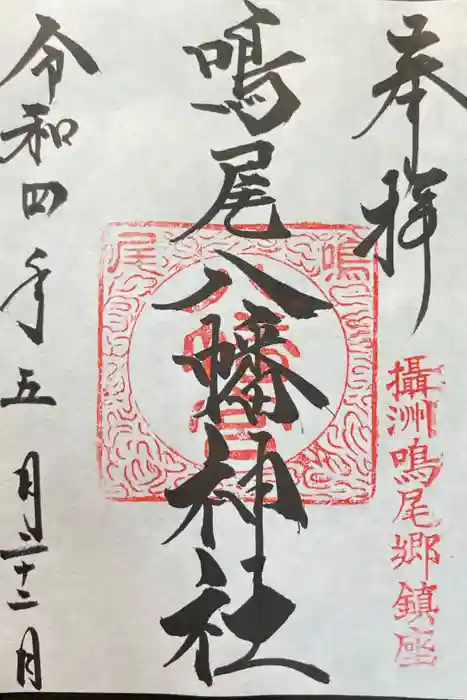 奉拝
攝洲鳴尾郷鎮座
鳴尾八幡神社
鳴尾
令和四年五月二十二日